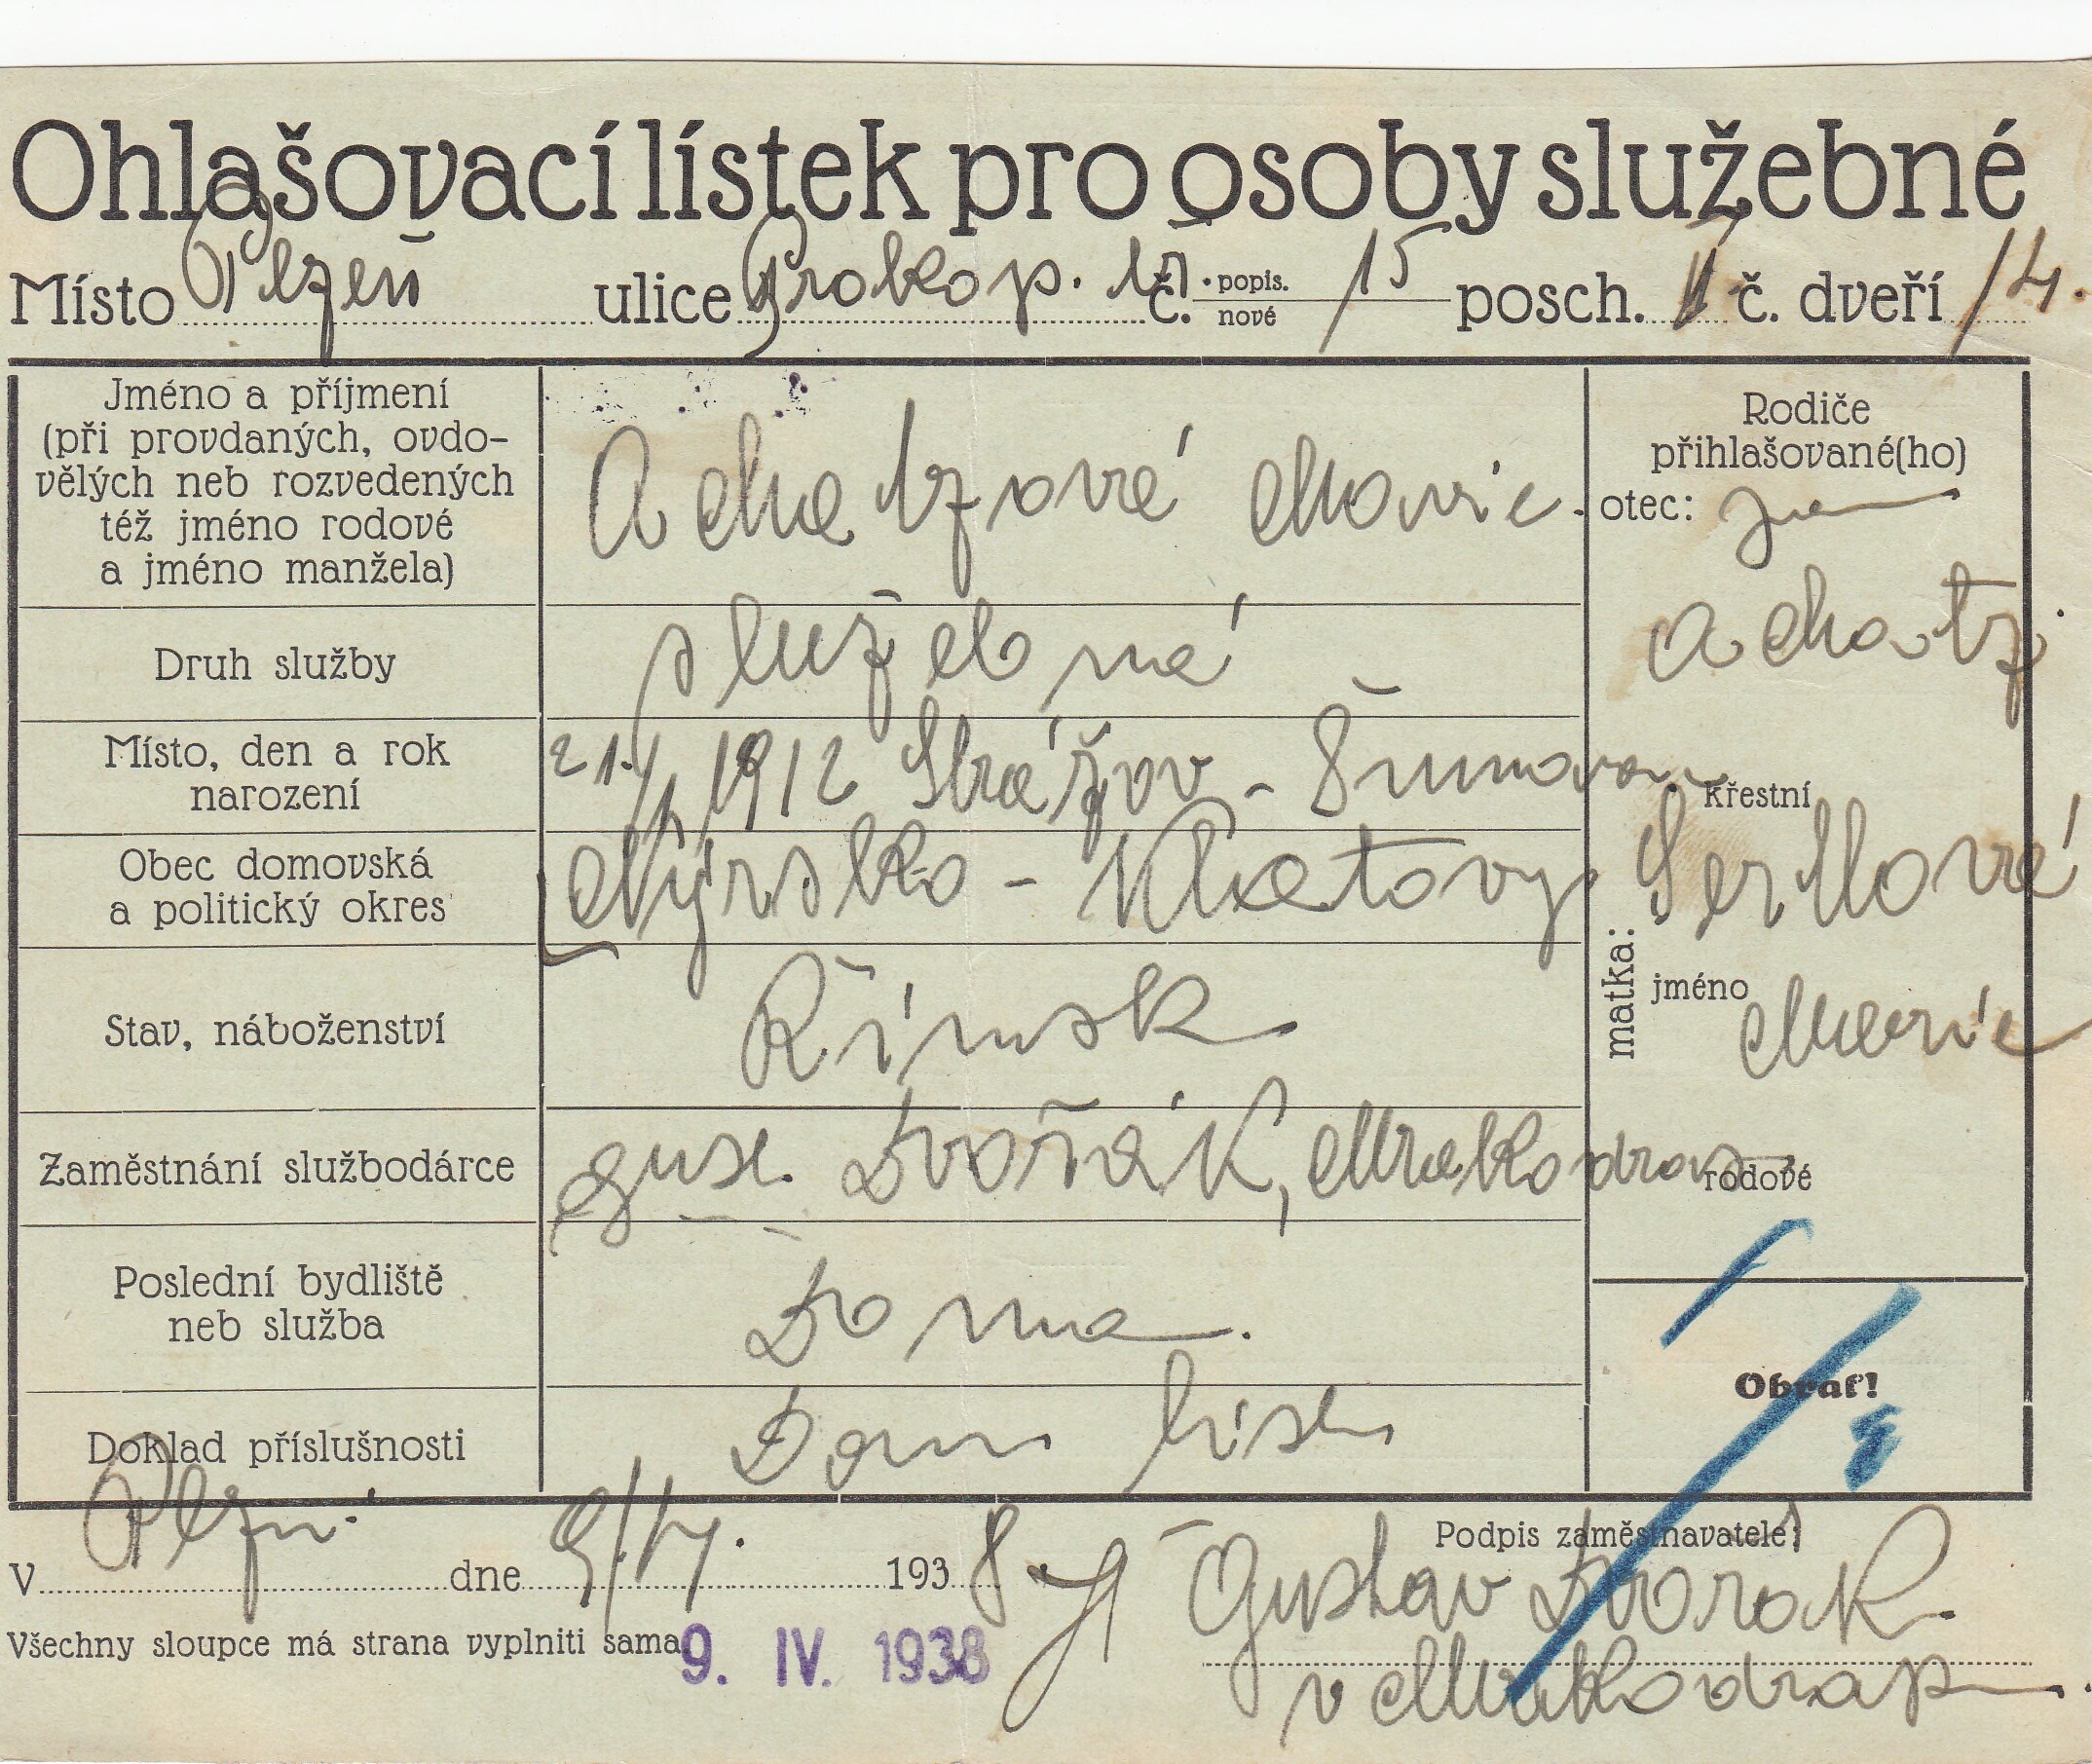 Ohlašovací lístek pro osoby služebné
Místo Plzeň ulice Prokop. tř. č. popis. nové 15 posch. 1 č. dveří 14.
Jméno a příjmení
(při provdaných, ovdo-
vělých neb rozvedených
též jméno rodové
a jméno manžela)
Achatzová Marie.
Rodiče
přihlašované(ho)
otec: Jan
Achatz.
Druh služby
služebná
Místo, den a rok
narození
21./1 1912 Strážov - Šumava
Obec domovská
a politický okres
Nýrsko - Klatovy
matka:
křestní
jméno
Marie
rodové
Stav, náboženství
Římsk
Zaměstnání službodárce
Gust. Dvořák, Mrakodrap
Poslední bydliště
neb služba
Doma.
Doklad příslušnosti
Dom list
Obrať!
V Plzni. dne 9./IV. 1938.
Podpis zaměstnavatele:
Gustav Dvořák.
v Mrakodrapu.
Všechny sloupce má strana vyplniti sama
9. IV. 1938